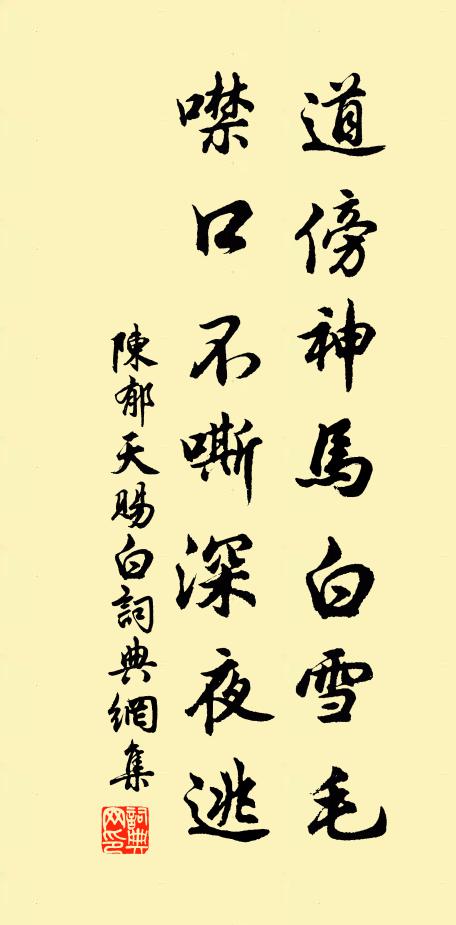 道傍神馬白雪毛
噤口不嘶深夜逃
陳郁天賜白詞典網集
詞典网印